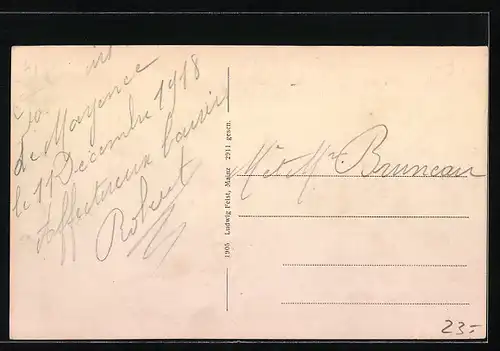 de Mayence
le 11 Décembre 1918
affectueux baisers
Robert
1905 Ludwig Feist, Mainz 2911 gesch.
Mr et Mme Bruneau
23.-